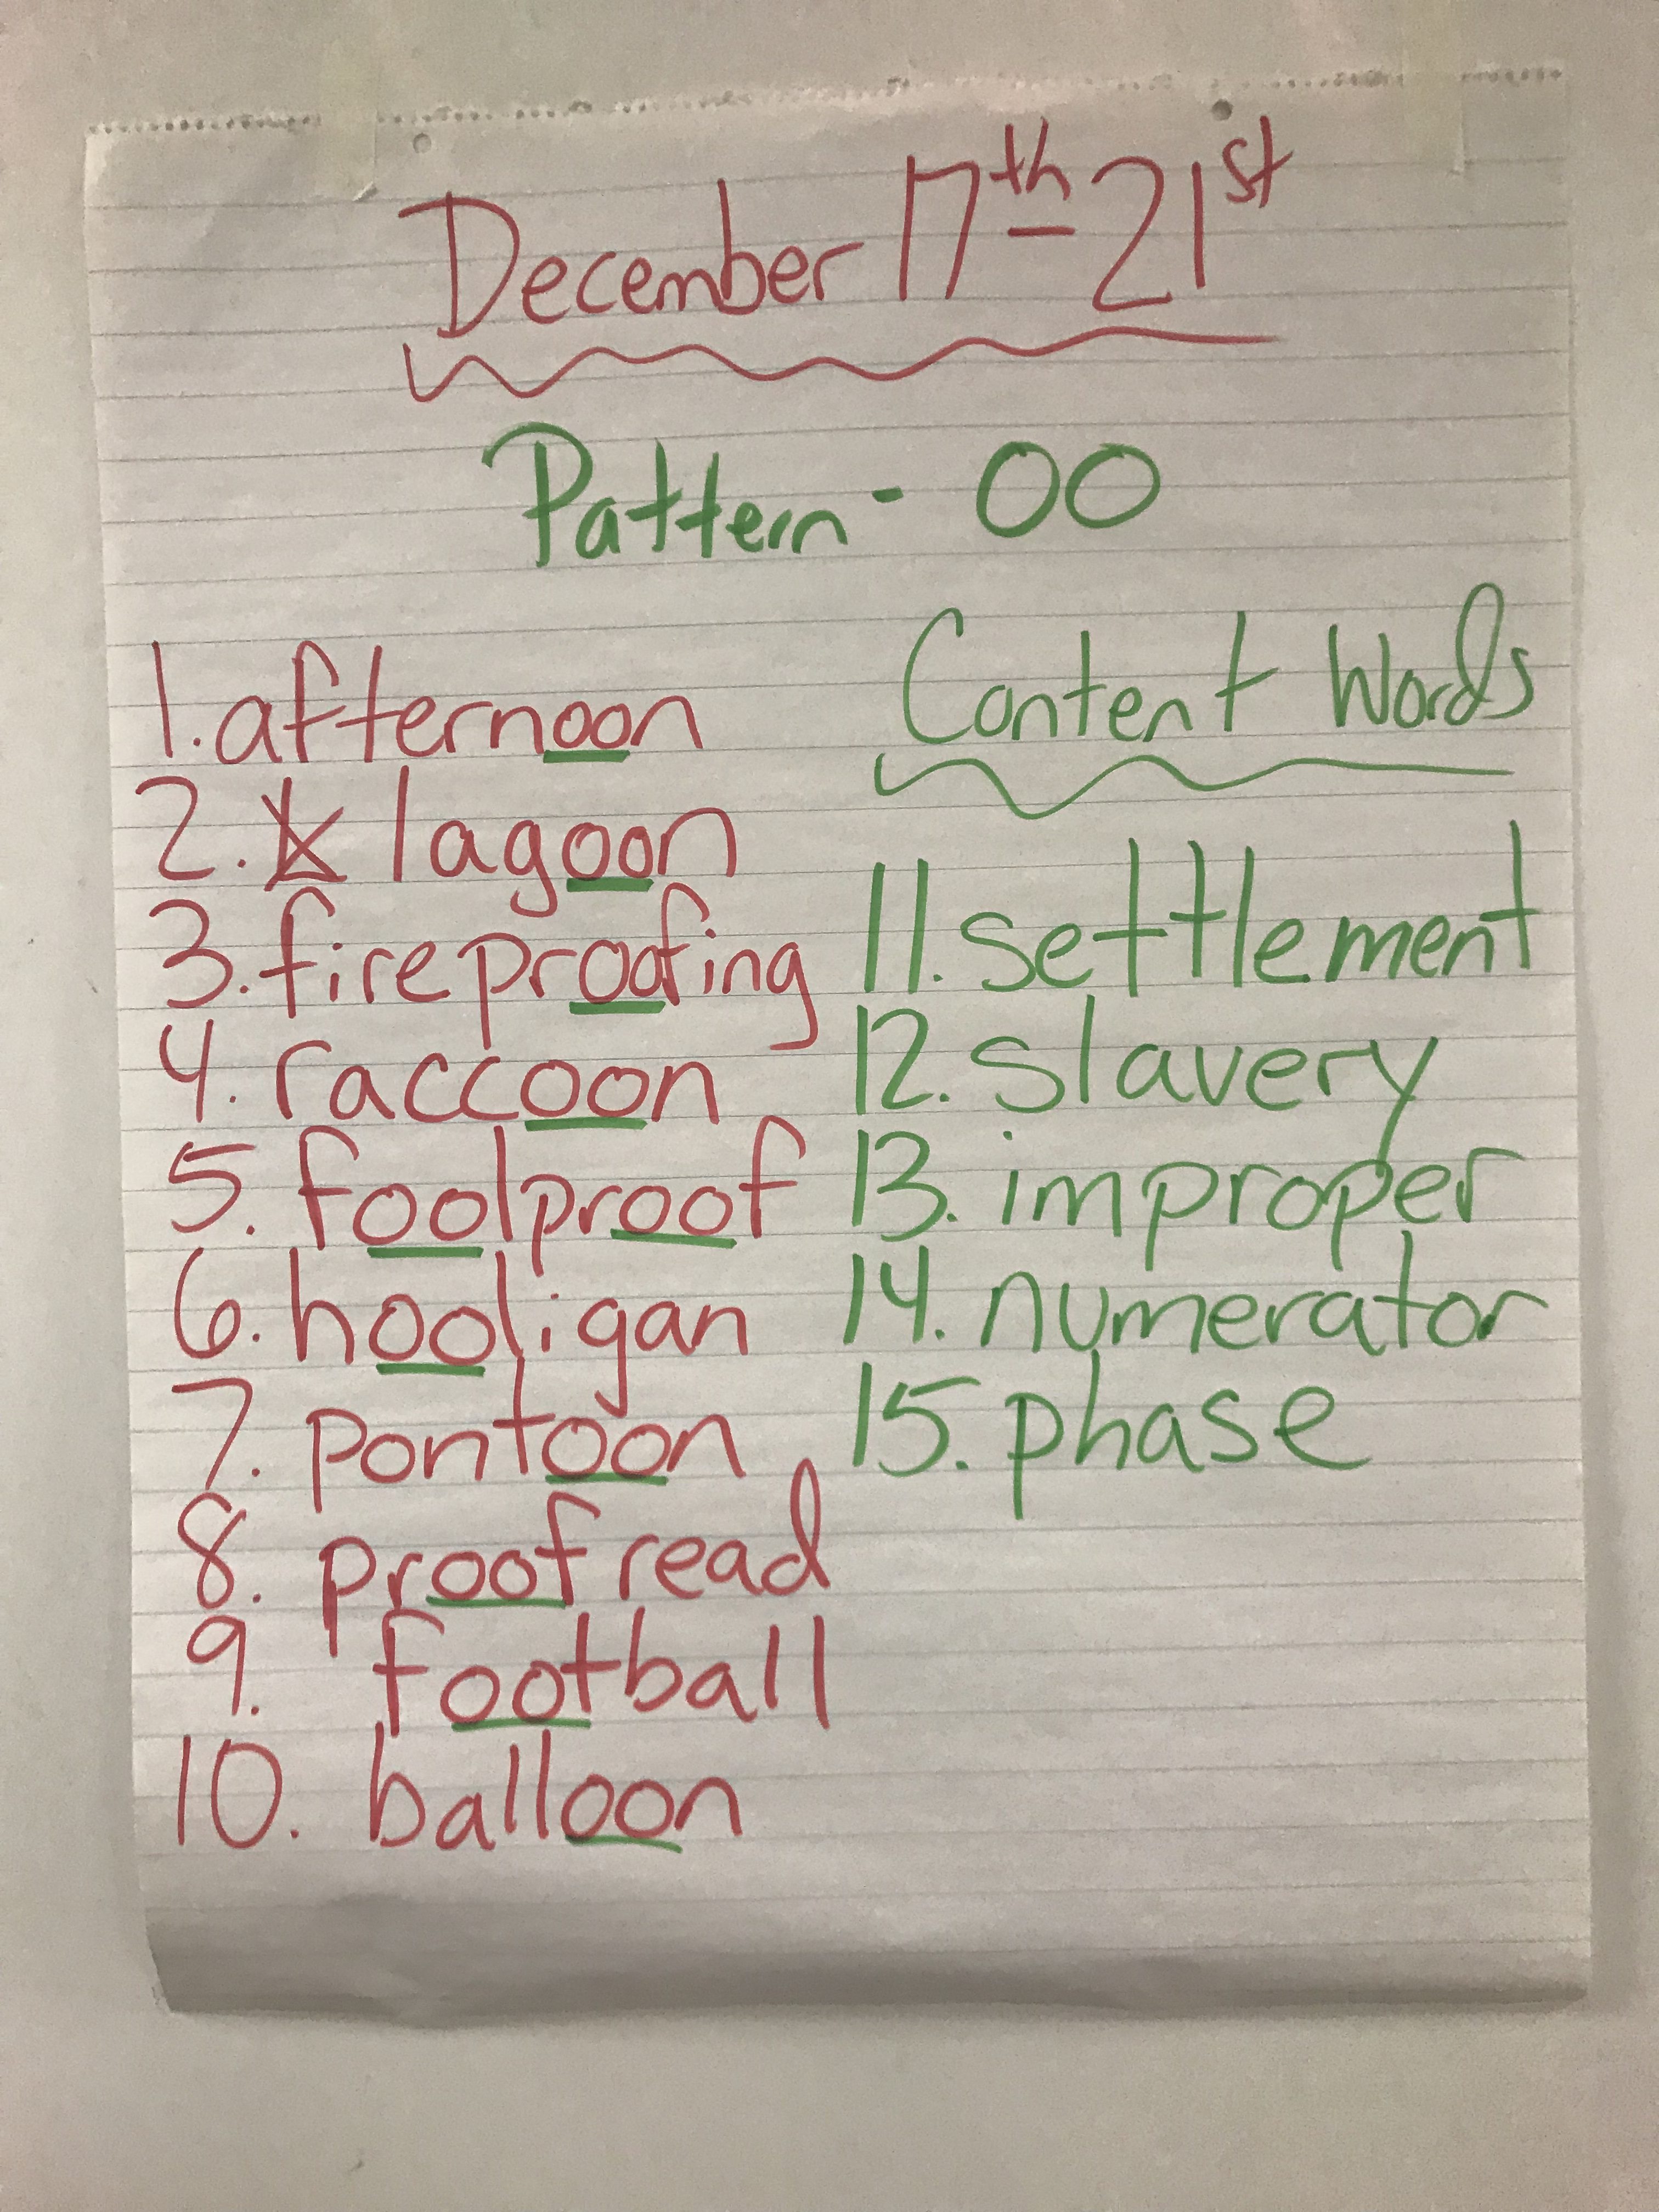 December 17th-21st
Pattern - OO
1. afternoon
2. lagoon
3. fireproofing
4. raccoon
5. foolproof
6. hooligan
7. pontoon
8. proofread
9. football
10. balloon
Content Words
11. settlement
12. slavery
13. improper
14. numerator
15. phase